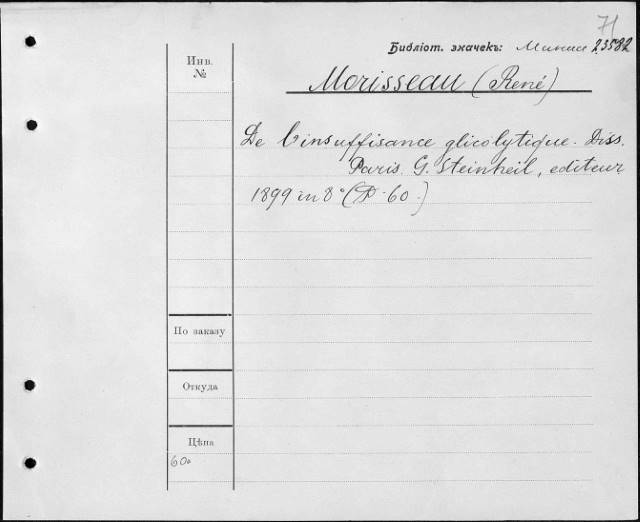 71
Библіот. значекъ: 23582
Инв.
№
Morisseau (René)
De l'insuffisance glicolytique. Diss.
Paris. G. Steinheil, editeur
1899 in 8° (P. 60.)
По заказу
Откуда
Цѣна
60